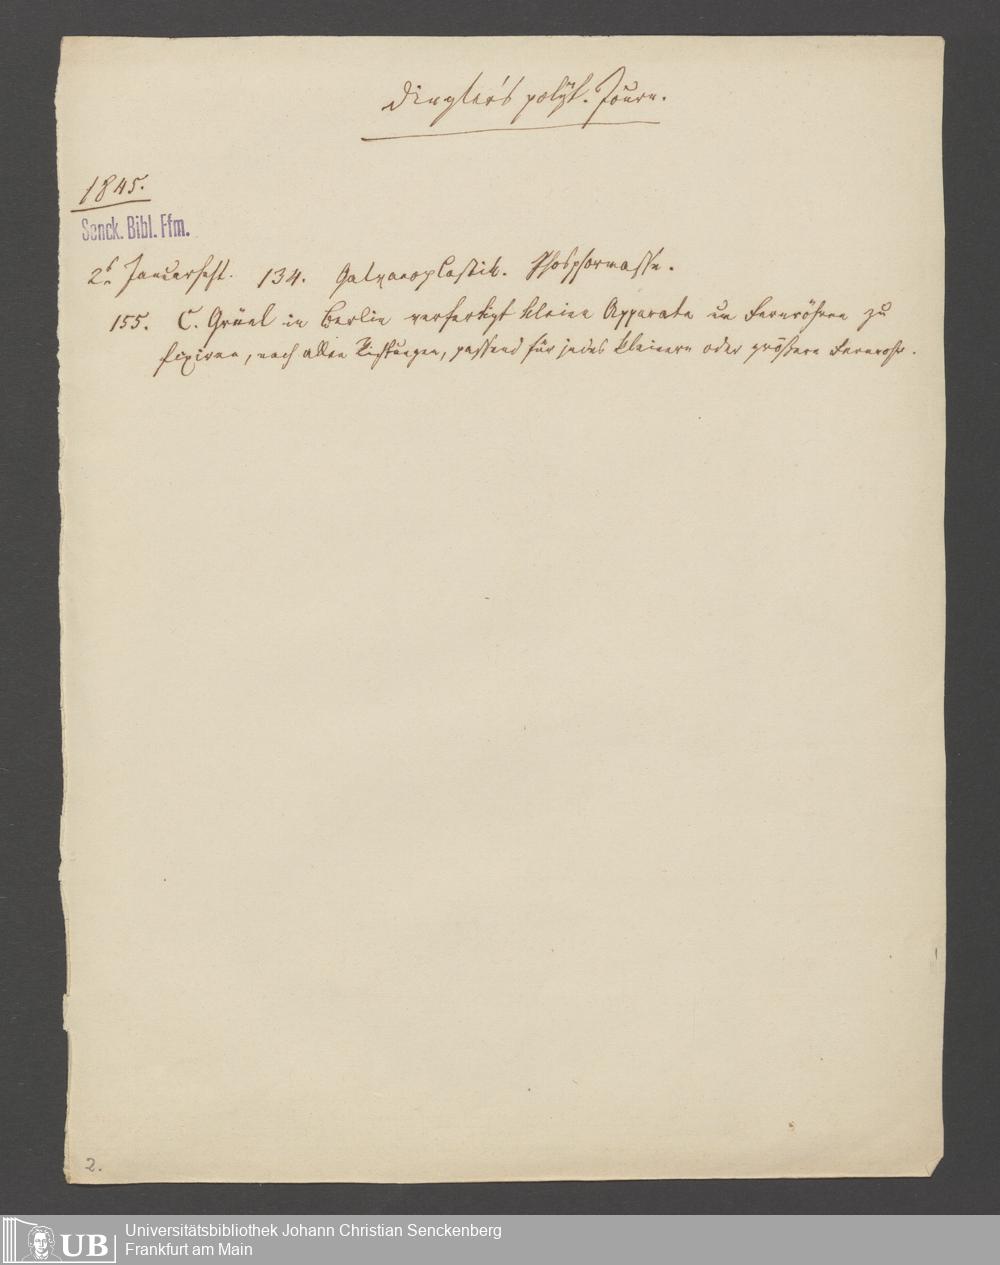 Dingler's polyt. Journ.
1845.
Senck. Bibl. Ffm.
2s Januarheft. 134. Galvanoplastik. Phosphormasse.
155. C. Grüel in Berlin verfertigt kleine Apparate um Fernröhren zu
fixiren, nach allen Richtungen, passend für jedes kleinern oder größern Fernrohr.
2.
UB
Universitätsbibliothek Johann Christian Senckenberg
Frankfurt am Main